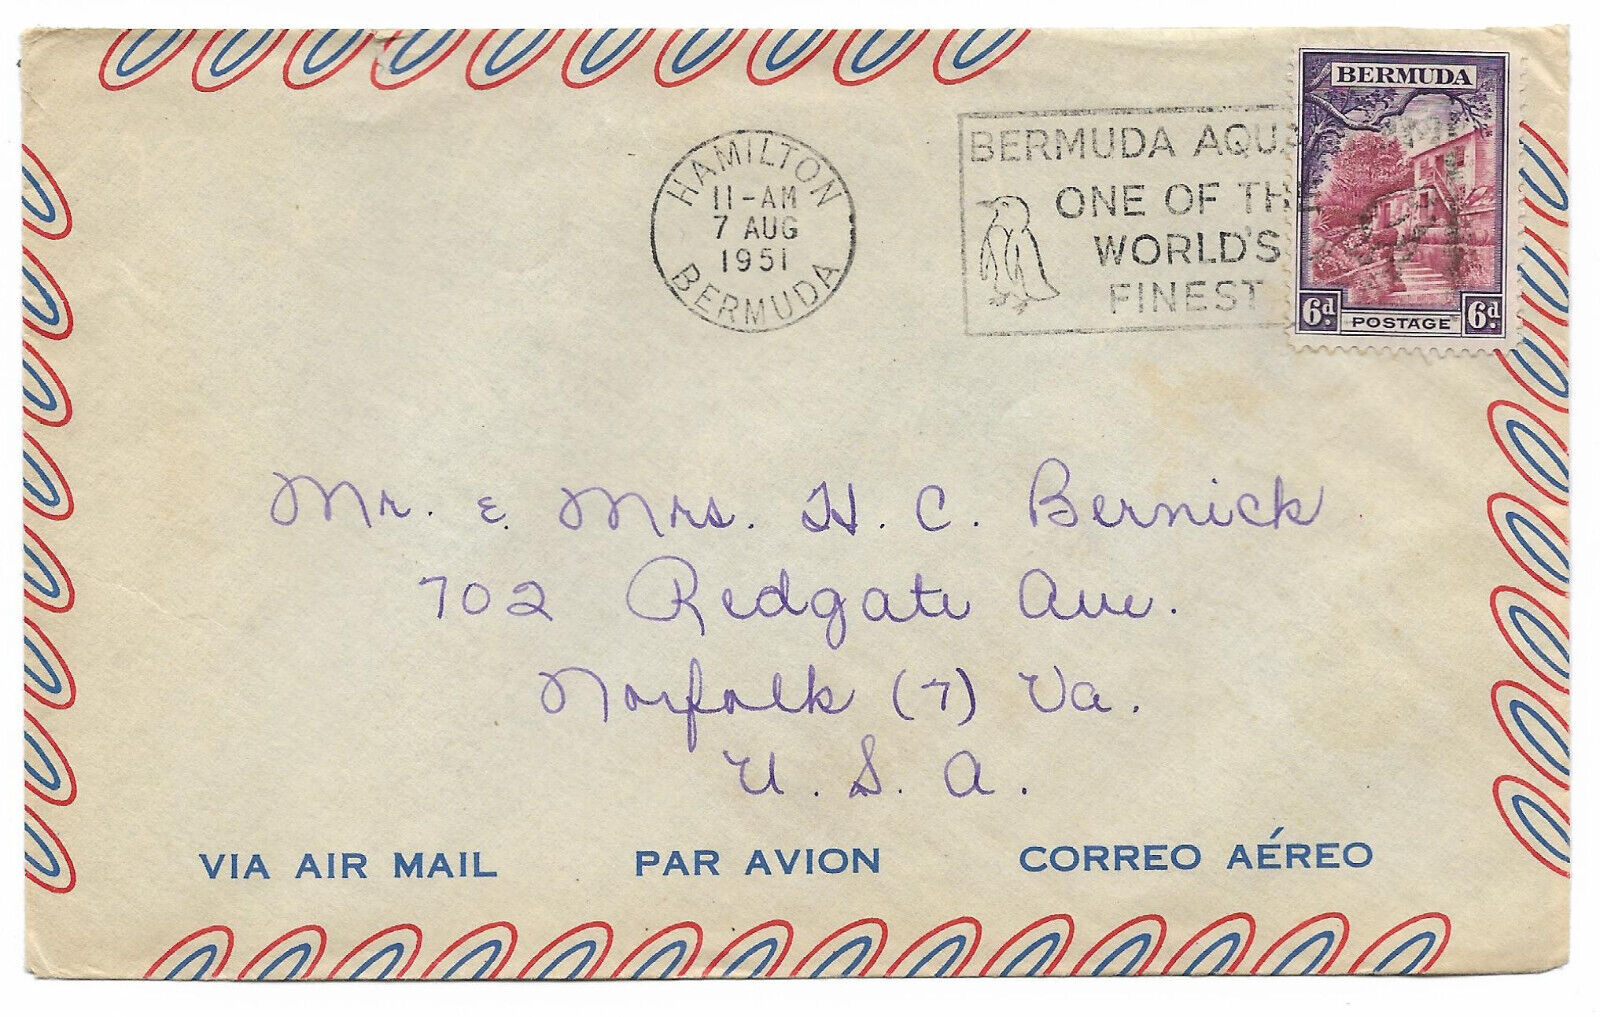 HAMILTON
11-AM
7 AUG
1951
BERMUDA
BERMUDA AQUA
ONE OF THE
WORLD'S
FINEST
BERMUDA
6d. POSTAGE 6d.
Mr. & Mrs. H. C. Bernick
702 Redgate Ave.
Norfolk (7) Va.
U. S. A.
VIA AIR MAIL PAR AVION CORREO AÉREO